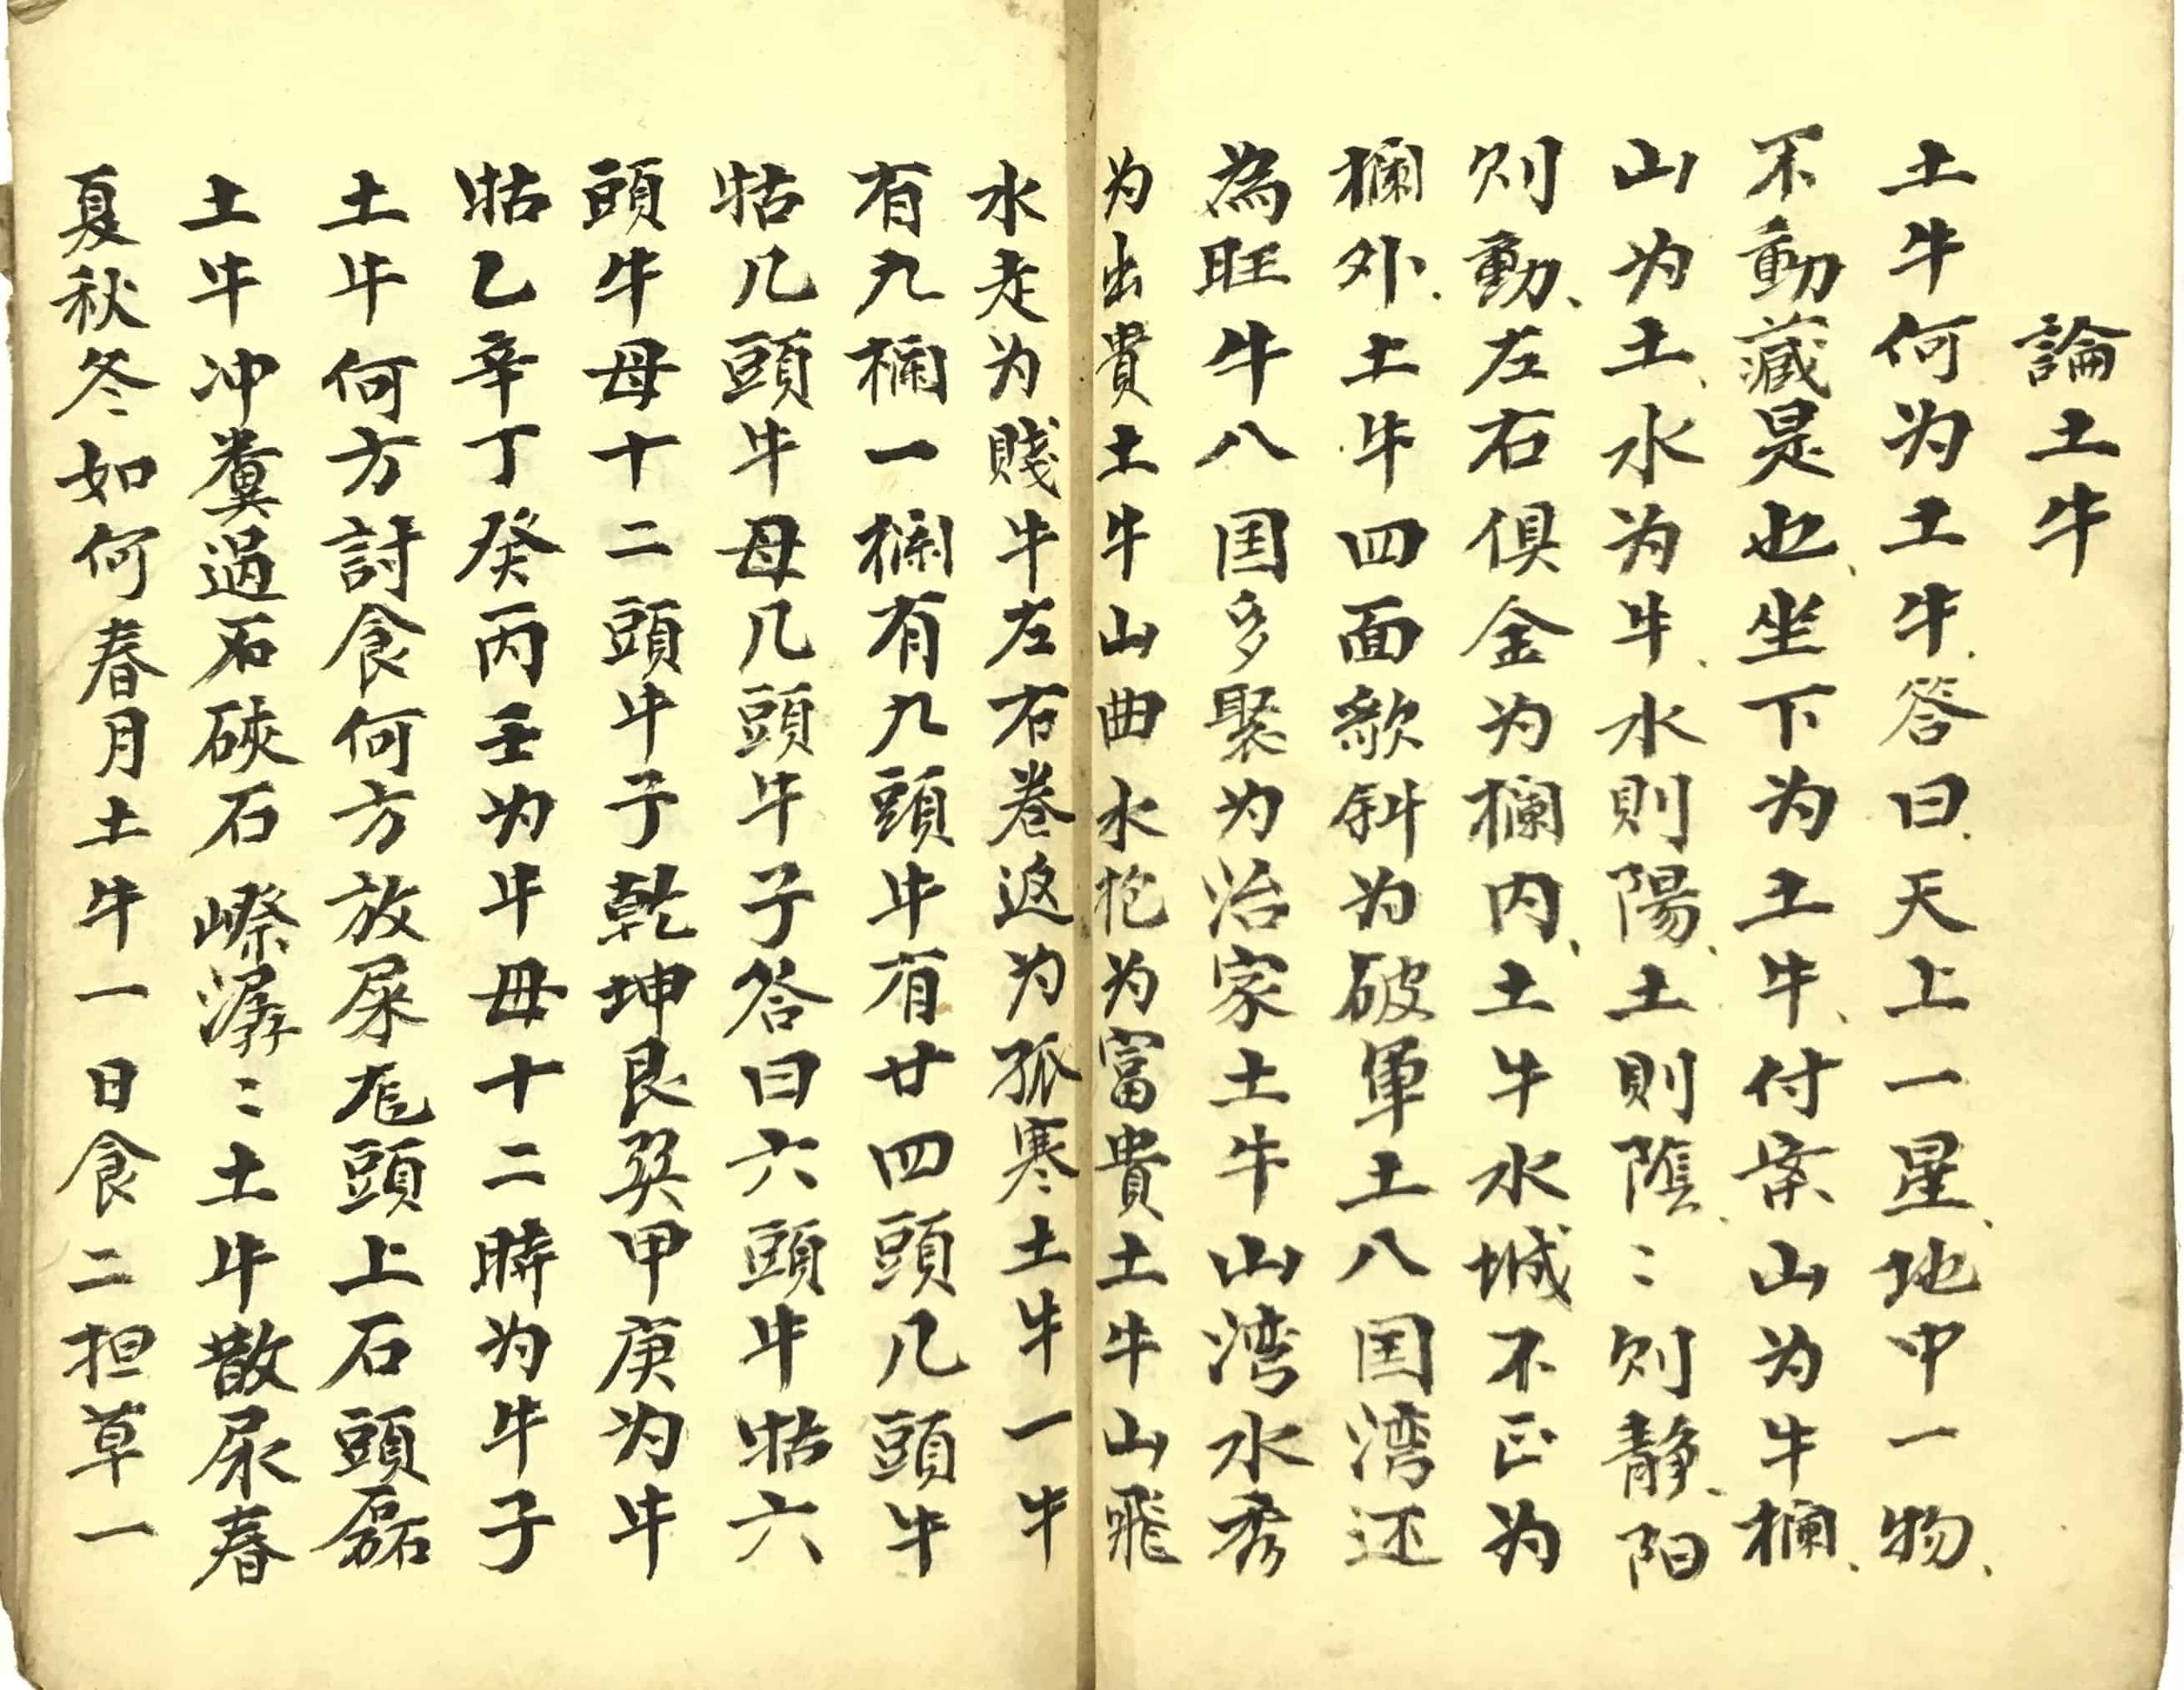 論土牛
土牛何为土牛答曰天上一星地中一物
不動藏是也坐下为土牛付案山为牛欄
山为土水为牛水則陽土則陰〻则静阳
则動左右俱金为欄内土牛水城不正为
欄外土牛四面欹斜为破軍土八国湾还
為旺牛八国多聚为治家土牛山湾水秀
为出貴土牛山曲水抱为富貴土牛山飛
水走为賤牛左右卷返为孤寒土牛一牛
有九欄一欄有九頭牛有廿四頭几頭牛
牯几頭牛母几頭牛子答曰六頭牛牯六
頭牛母十二頭牛子乾坤艮巽甲庚为牛
牯乙辛丁癸丙壬为牛母十二時为牛子
土牛何方討食何方放屎頭上石頭磊
土牛冲糞過石硤石嵺潺〻土牛散尿春
夏秋冬如何春月土牛一日食二担草一